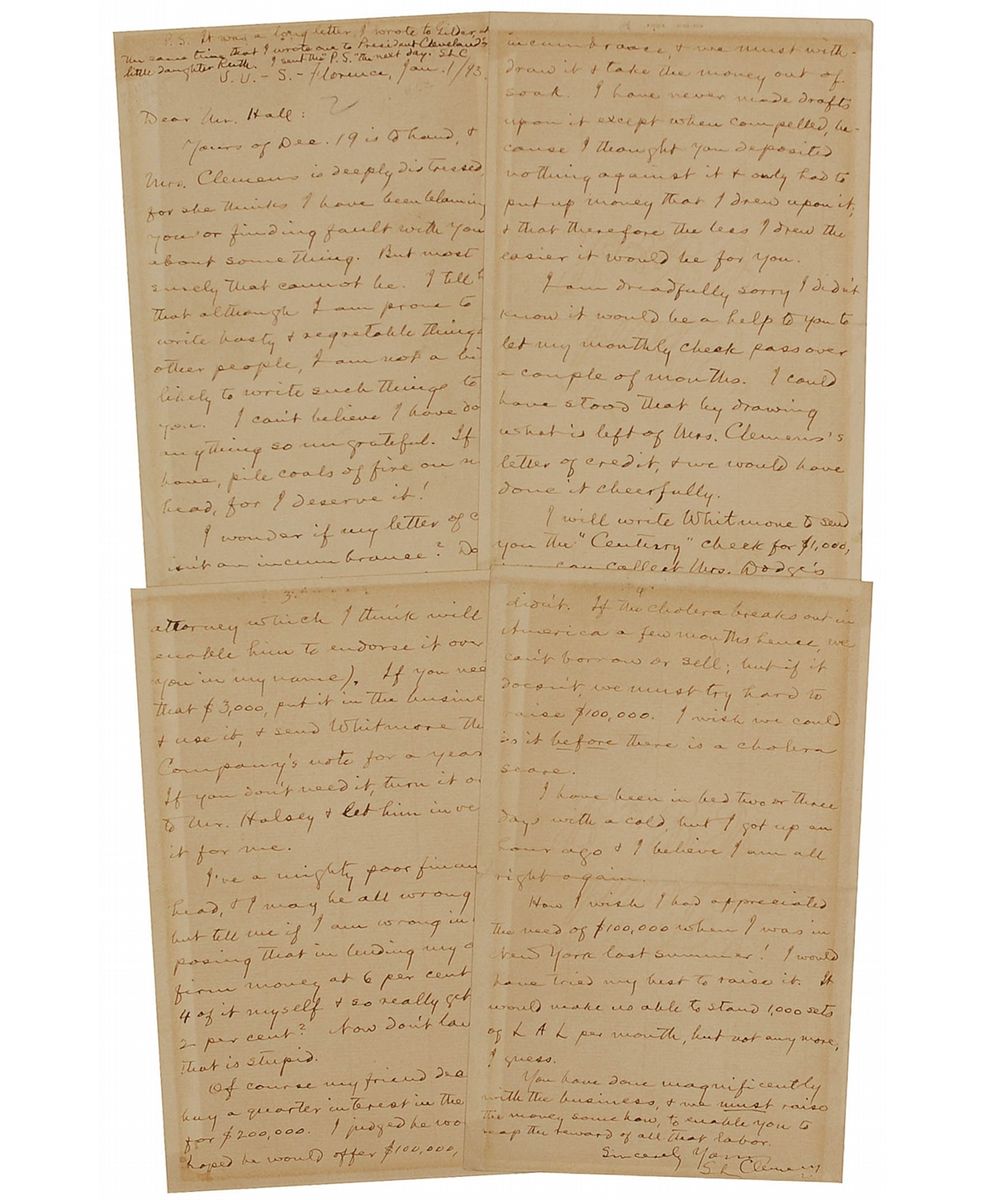 P.S. It was a long letter, I wrote to Gilder, at
the same time that I wrote one to President Cleveland's
little daughter Ruth. I sent the "P.S." the next day. SLC
Florence, Jan. 1/93.
Dear Mr. Hall:
Yours of Dec. 19 is to hand, &
Mrs. Clemens is deeply distressed,
for she thinks I have been blaming
you or finding fault with you
about something. But most
surely that cannot be. I tell
that although I am prone to
write hasty & regretable things
other people, I am not a bi
likely to write such things to
you. I can't believe I have do
anything so ungrateful. If
have, pile coals of fire on m
head, for I deserve it!
I wonder if my letter of c
isn't an incumbrance? Do
2
incumbrance, & we must with-
draw it & take the money out of
soak. I have never made drafts
upon it except when compelled, be-
cause I thought you deposited
nothing against it & only had to
put up money that I drew upon it,
& that therefore the less I drew the
easier it would be for you.
I am dreadfully sorry I didn't
know it would be a help to you to
let my monthly check pass over
a couple of months. I could
have stood that by drawing
what is left of Mrs. Clemens's
letter of credit, & we would have
done it cheerfully.
I will write Whitmore to send
you the "Century" check for $1,000,
can collect Mrs. Dodge's
3
attorney which I think will
enable him to endorse it over
you in my name). If you nee
that $3,000, put it in the busine
& use it, & send Whitmore the
Company's note for a year
If you don't need it, turn it o
to Mr. Halsey & let him inve
it for me.
I've a mighty poor finan
head, & I may be all wrong
but tell me if I am wrong in
posing that in lending my o
firm money at 6 per cent
4 of it myself & so really get
2 per cent? Now don't lau
that is stupid.
Of course my friend dec
buy a quarter interest in the
for $200,000. I judged he wo
hoped he would offer $100,000,
4
didn't. If the cholera breaks out in
America a few months hence, we
can't borrow or sell; but if it
doesn't, we must try hard to
raise $100,000. I wish we could
do it before there is a cholera
scare.
I have been in bed two or three
days with a cold, but I got up an
hour ago & I believe I am all
right again.
How I wish I had appreciated
the need of $100,000 when I was in
New York last summer! I would
have tried my best to raise it. It
would make us able to stand 1,000 sets
of L A L per month, but not any more,
I guess.
You have done magnificently
with the business, & we must raise
the money somehow, to enable you to
reap the reward of all that labor.
Sincerely Yours
S L Clemens